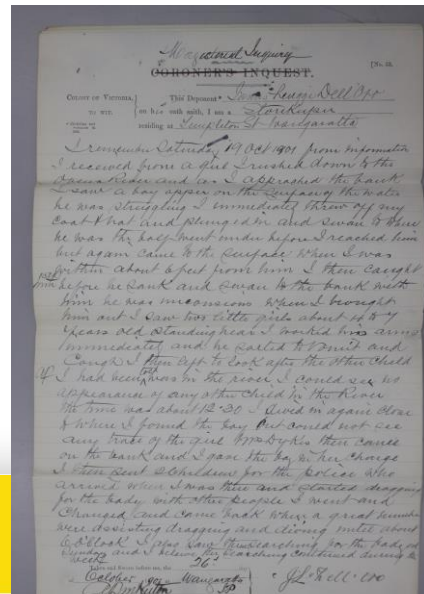 Magisterial Inquiry
CORONER'S INQUEST.
[No. 28.
COLONY OF VICTORIA, This Deponent
TO WIT. on his oath saith, I am a Storekeeper
residing at Templeton St Wangaratta
I remember Saturday 19 Oct 1901 from information
I received from a girl I rushed down to the
Ovens River and as I approached the bank
I saw a boy appear on the surface of the water
he was struggling I immediately threw off my
coat & hat and plunged in and swam to where
he was the boy went under before I reached him
but again came to the surface when I was
within about 6 feet from him I then caught
him before he sank and swam to the bank with
him he was unconscious when I brought
him out I saw two little girls about 6 or 7
years old standing near I worked his arms
immediately and he started to vomit and
cough I then left to look after the other child
I had been told was in the river I could see no
appearance of any other child in the River
the time was about 12-30 I dived in again close
to where I found the boy but could not see
any trace of the girl Mrs Dykes then came
on the bank and I gave the boy in her charge
I then sent children for the police who
arrived when I was there and started dragging
for the body with other people I went and
changed and came back when a great number
were assisting dragging and diving until about
6 O'Clock I also saw them searching for the body on
Sunday and I believe the searching continued during the
week
Taken and sworn before me, the 26th
October 1901 Wangaratta
JP